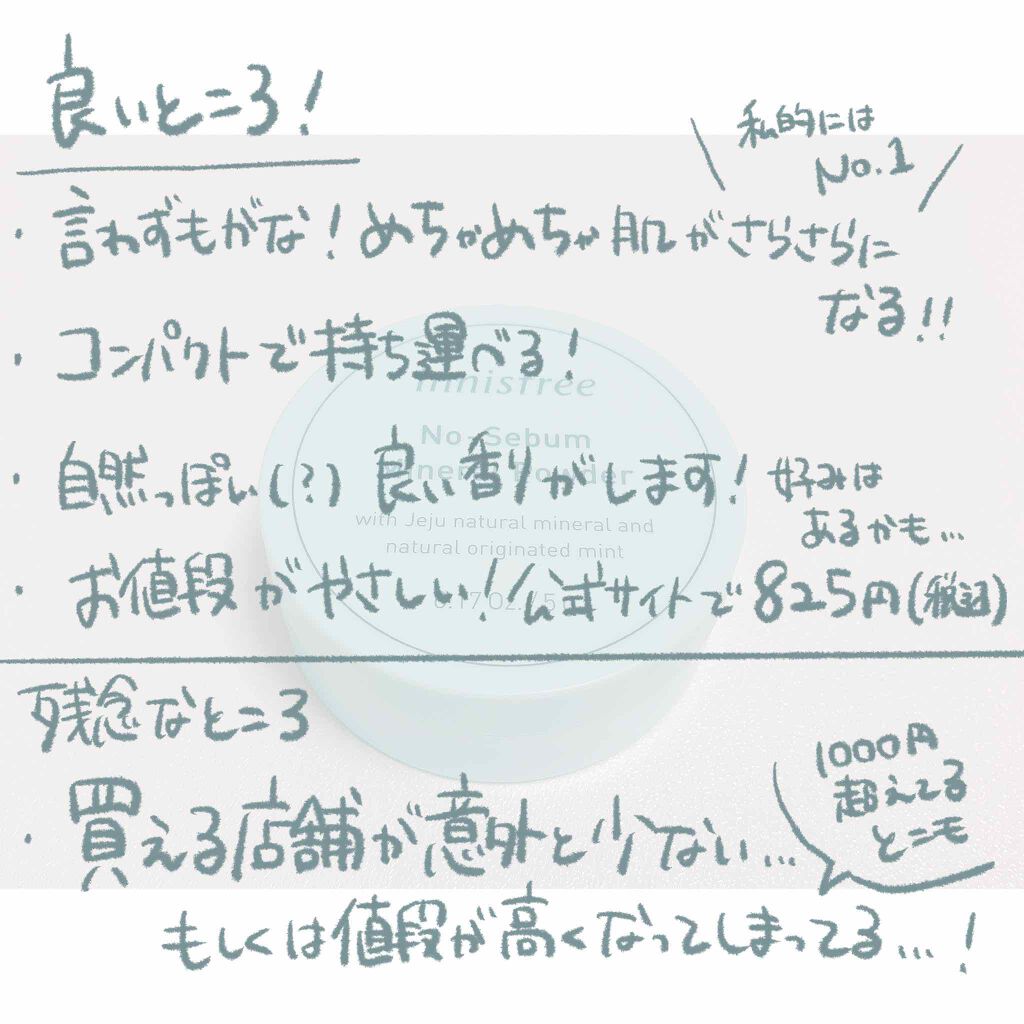 良いところ!
私的には
No.1
・言わずもがな!めちゃめちゃ肌がさらさらに
なる!!
・コンパクトで持ち運べる!
innisfree
No-Sebum
Mineral Powder
・自然っぽい(?)良い香りがします!
好みは
あるかも…
with Jeju natural mineral and
natural originated mint
・お値段がやさしい!公式サイトで825円(税込)
残念なところ
・買える店舗が意外と少ない…
1000円
超えてる
とこモ
もしくは値段が高くなってしまってる…!